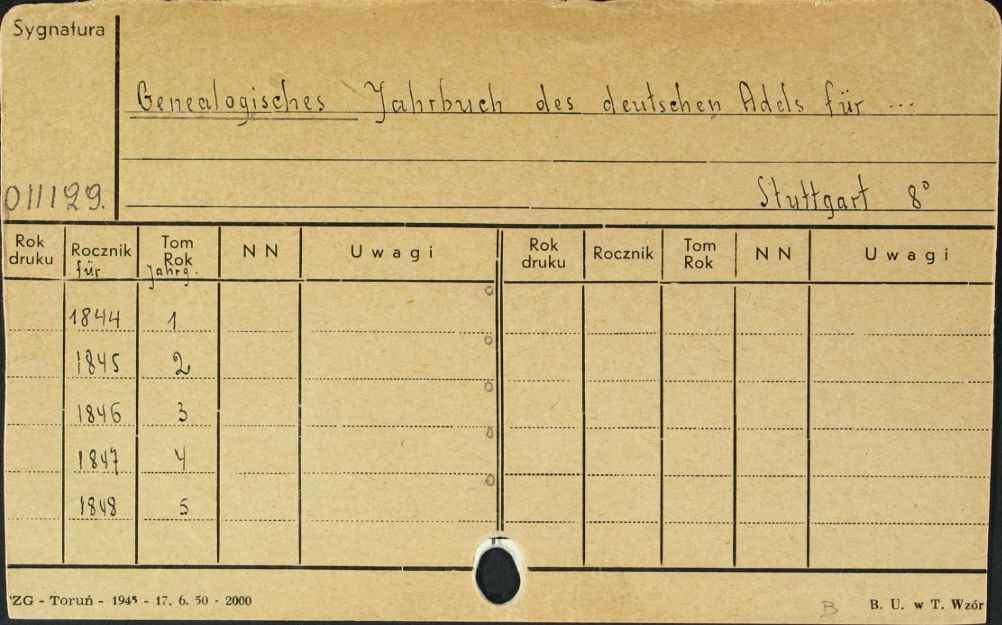 Sygnatura
Genealogisches Jahrbuch des deutschen Adels für ...
011129.
Stuttgart 8°
Rok druku Rocznik für Tom Rok Jahrg. N N Uwagi Rok druku Rocznik Tom Rok N N Uwagi
1844 1
1845 2
1846 3
1847 4
1848 5
ZG - Toruń - 1945 - 17. 6. 50 - 2000
B
B. U. w T. Wzór